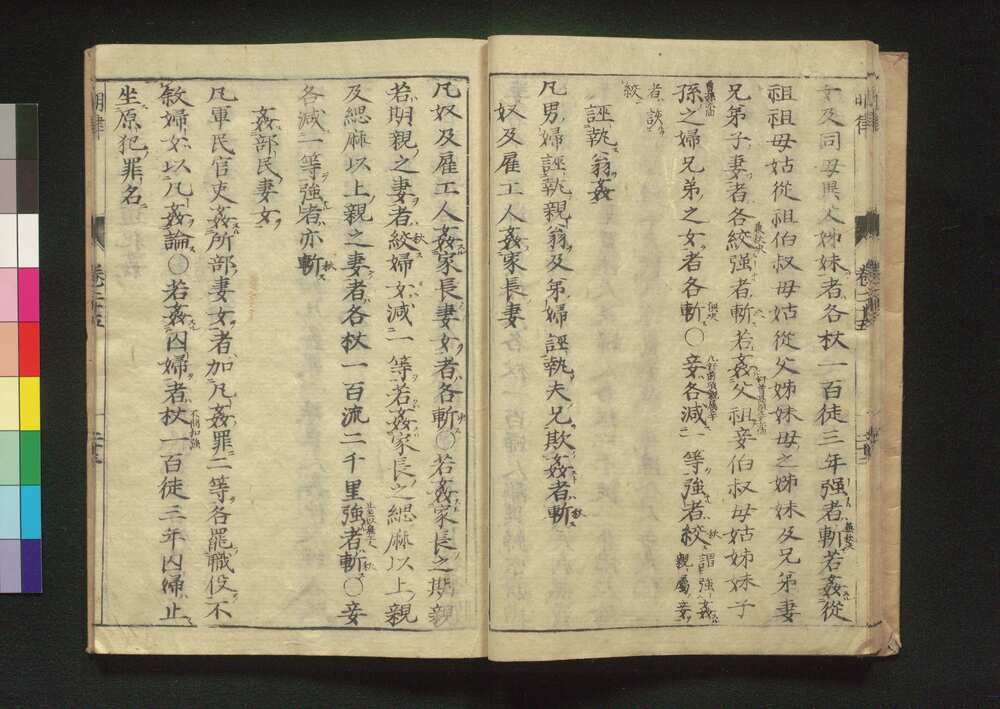 明律
卷二十五
女及同母異父姊妹者各杖一百徒三年强者斬若姦從
祖祖母姑從祖伯叔母姑從父姊妹母之姊妹及兄弟妻
兄弟子妻者各絞强者斬若姦父祖妾伯叔母姑姊妹子
孫之婦兄弟之女者各斬〇妾各減一等強者絞謂強姦親屬妾
者
絞
誣執翁姦
凡男婦誣執親翁及弟婦誣執夫兄欺姦者斬
奴及雇工人姦家長妻
凡奴及雇工人姦家長妻女者各斬〇若姦家長之期親
若期親之妻者絞婦女減一等若姦家長之緦麻以上親
及緦麻以上親之妻者各杖一百流二千里強者斬〇妾
各減一等強者亦斬
姦部民妻女
凡軍民官吏姦所部妻女者加凡姦罪二等各罷職役不
敘婦女以凡姦論〇若姦囚婦者杖一百徒三年囚婦止
坐原犯罪名
明律
卷二十五